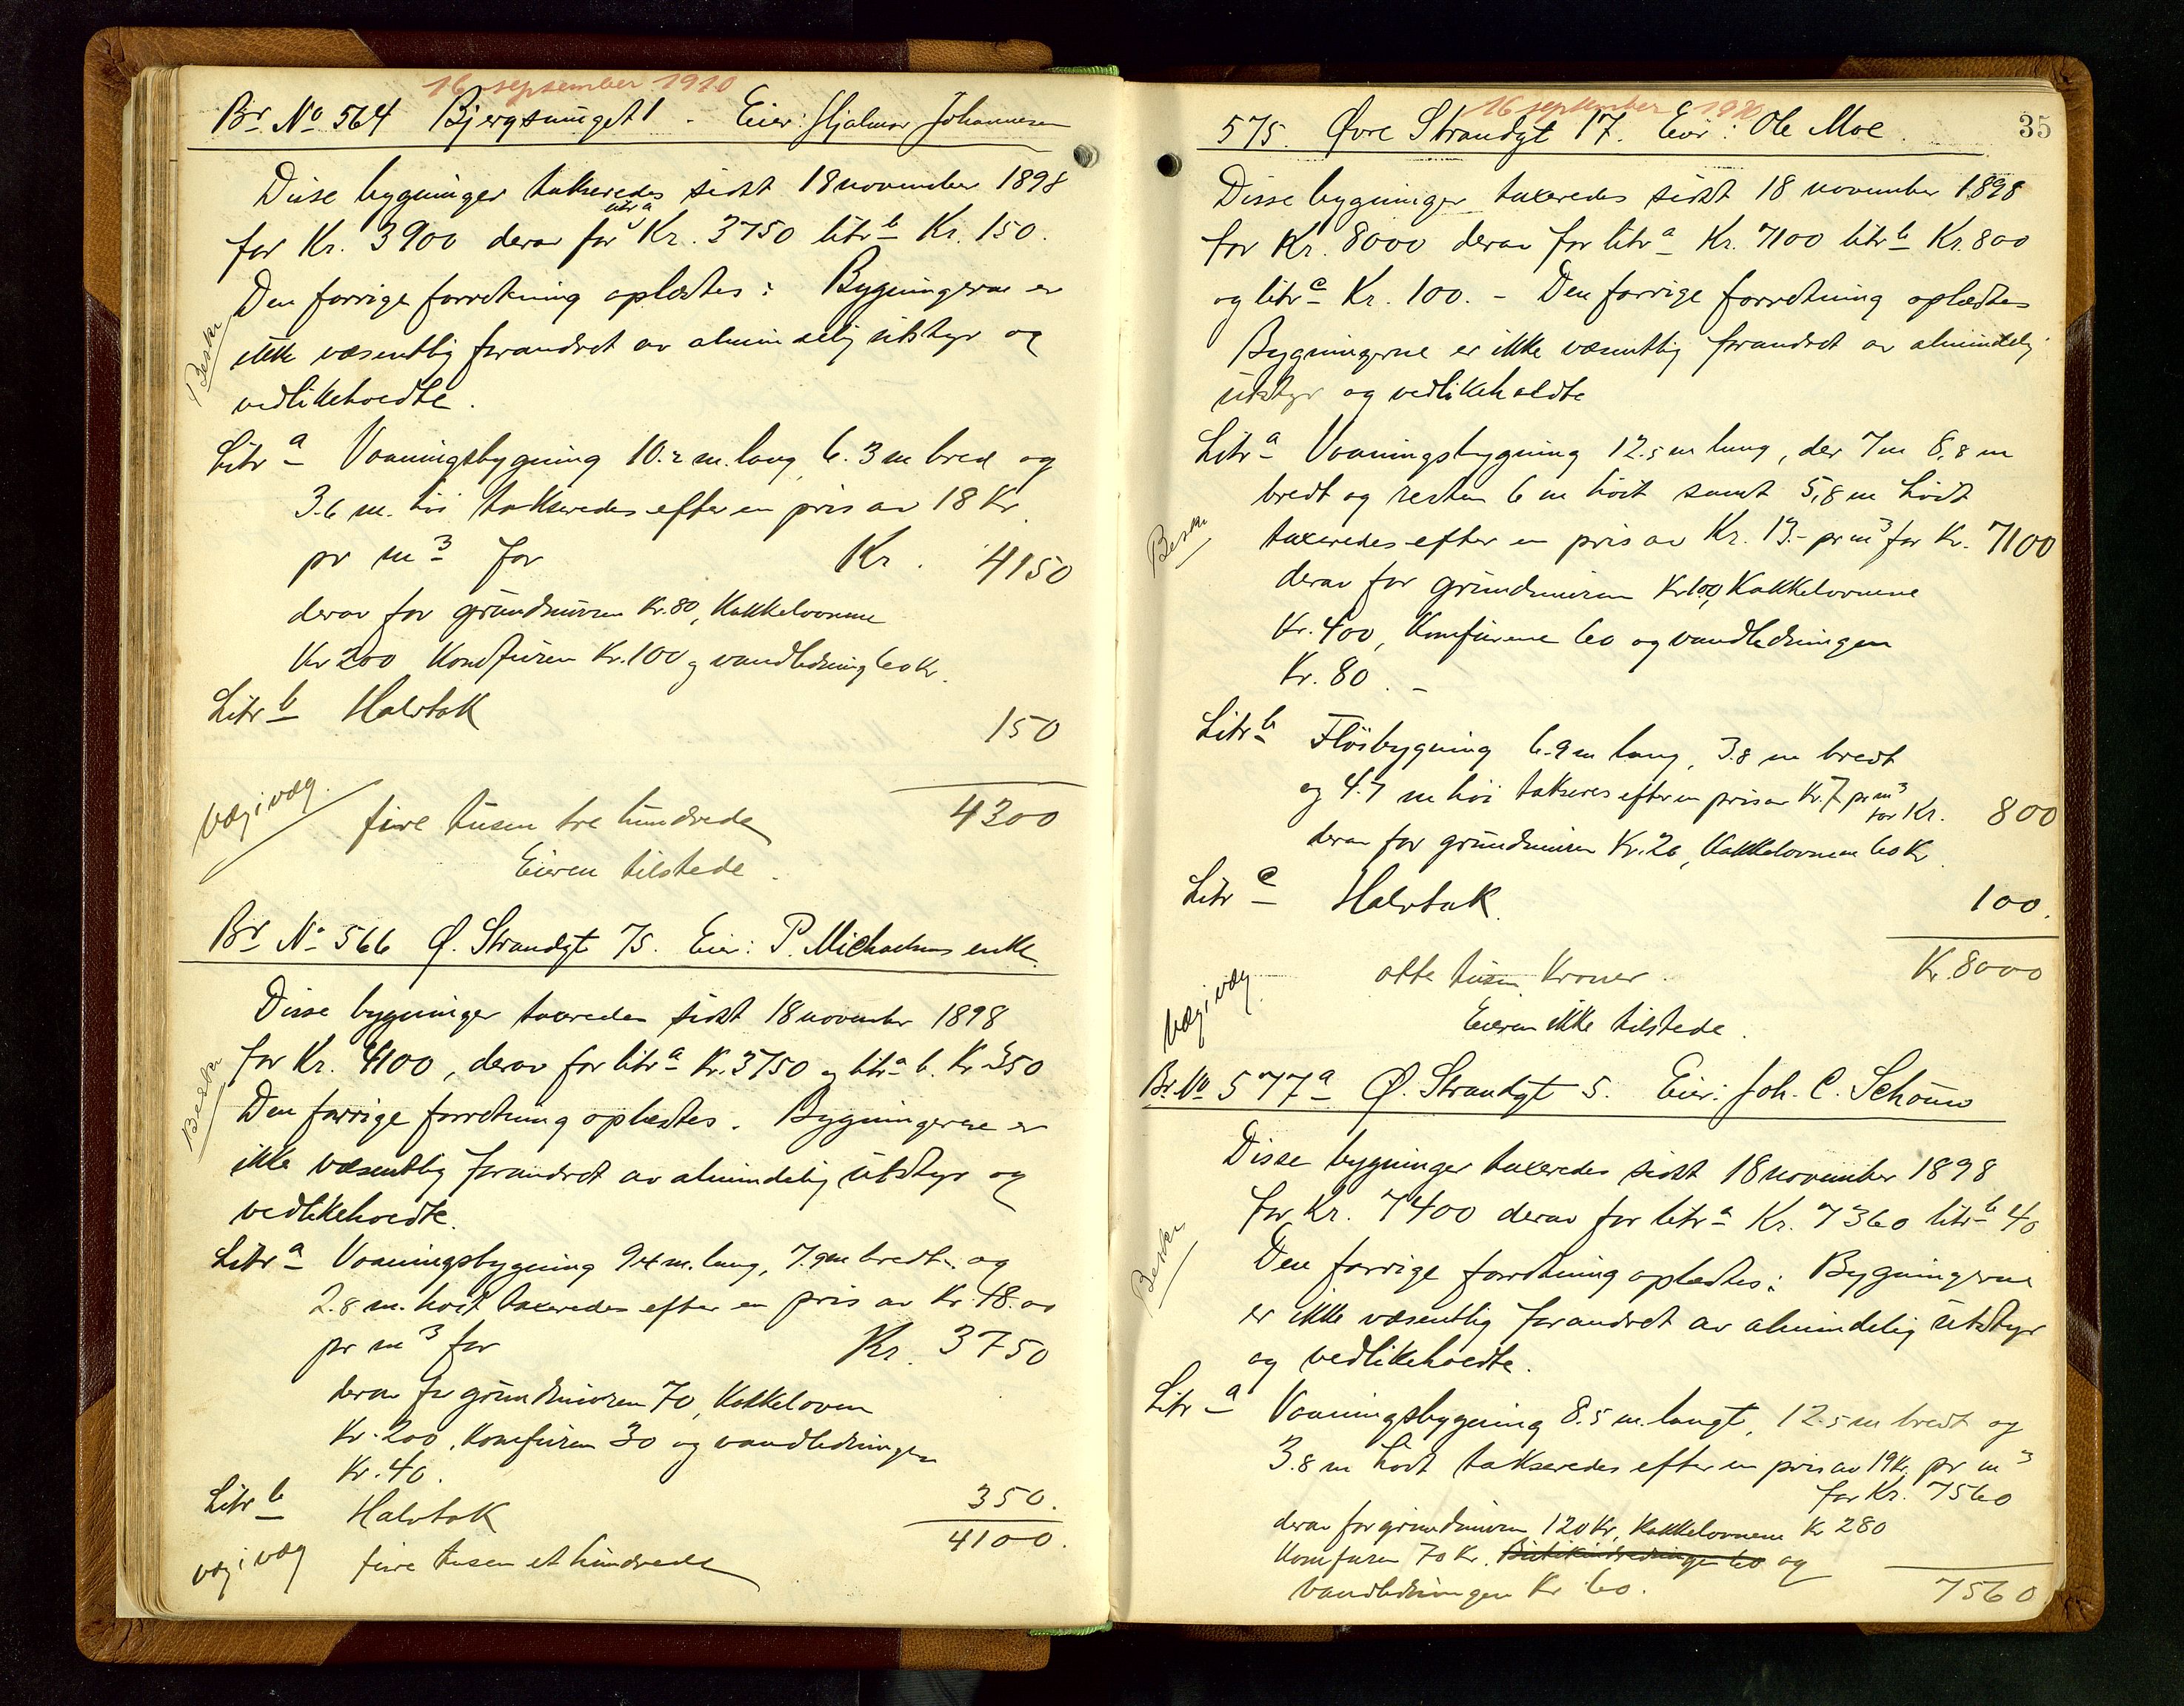 16 september 1910
Br. No 564 Bjergsmuget 1 - Eier: Hjalmar Johannesen
Disse bygninger takseredes sidst 18 november 1898
for Kr. 3900 derav for litr a Kr. 3750 litr b Kr. 150.
Beskr Den forrige forretning oplæstes: Bygningerne er
ikke væsentlig forandret av almindelig utstyr og
vedlikeholdte.
Litr a Vaaningsbygning 10.2 m. lang, 6.3 m bred og
3.6 m. høi takseredes efter en pris av 18 Kr.
pr m3 for Kr. 4150
derav for grundmuren Kr. 80, Kakkelovnene
Kr 200 Komfuren Kr. 100 og vandledning 60 Kr.
Litr b Halvtak 150
Væg i væg. fire tusen tre hundrede 4300
Eieren tilstede.
Br No 566 Ø. Strandgt 75. Eier: P. Michaelsens enke.
Disse bygninger taxeredes sidst 18 november 1898
for Kr. 4100, derav for litr a Kr. 3750 og litr b. Kr 350
Beskr Den forrige forretning oplæstes. Bygningerne er
ikke væsentlig forandret av almindelig utstyr og
vedlikeholdte.
Litr a Vaaningsbygning 9.4 m. lang, 7.9 m bredt og
2.8 m. høit taxeredes efter en pris av Kr. 18.00
pr m3 for Kr. 3750
derav for grundmuren 70, Kakkeloven
Kr. 200, Komfuren 30 og vandledningen
Kr. 40.
Litr b Halvtak 350.
væg i væg fire tusen et hundrede 4100.
35
16 september 1910
575. Øvre Strandgt 17. Eier: Ole Moe.
Disse bygninger taxeredes sidst 18 november 1898
for Kr. 8000 derav for litr a Kr. 7100 litr b Kr. 800
og litr c Kr. 100. - Den forrige forretning oplæstes
Bygningerne er ikke væsentlig forandret av almindelig
utstyr og vedlikeholdte
Litr a Vaaningsbygning 12.5 m lang, der 7 m 8,8 m
bredt og resten 6 m høit samt 5,8 m høit
Beskr taxeredes efter en pris av Kr. 13.- pr m3 for Kr. 7100
derav for grundmuren Kr 100, Kakkelovnene
Kr. 400, Komfurene 60 og vandledningen
Kr. 80. -
Litr b Fløibygning 6.9 m lang, 3.8 m bredt
og 4.7 m høi takseres efter en pris av Kr. 7 pr m3
for Kr. 800
derav for grundmuren Kr. 20, Kakkelovnen 60 Kr.
Litr c Halvtak. 100.
Kr. 8000
Væg i væg. otte tusen Kroner.
Eieren ikke tilstede.
Br. No 577 a Ø. Strandgt 5. Eier: Joh. C. Schouw
Disse bygninger taxeredes sidst 18 november 1898
for Kr. 7400 derav for litr a Kr. 7360 litr b 40
Beskr Den forrige forretning oplæstes: Bygningerne
er ikke væsentlig forandret av almindelig utstyr
og vedlikeholdte.
Litr a Vaaningsbygning 8.5 m. langt, 12.5 m bredt og
3.8 m høit takseredes efter en pris av 19 Kr. pr m3
for Kr. 7560
derav for grundmuren 120 Kr, Kakkelovnene Kr 280
Komfuren 70 Kr. Butikindredningen 60 og
vandledningen Kr 60. 7560